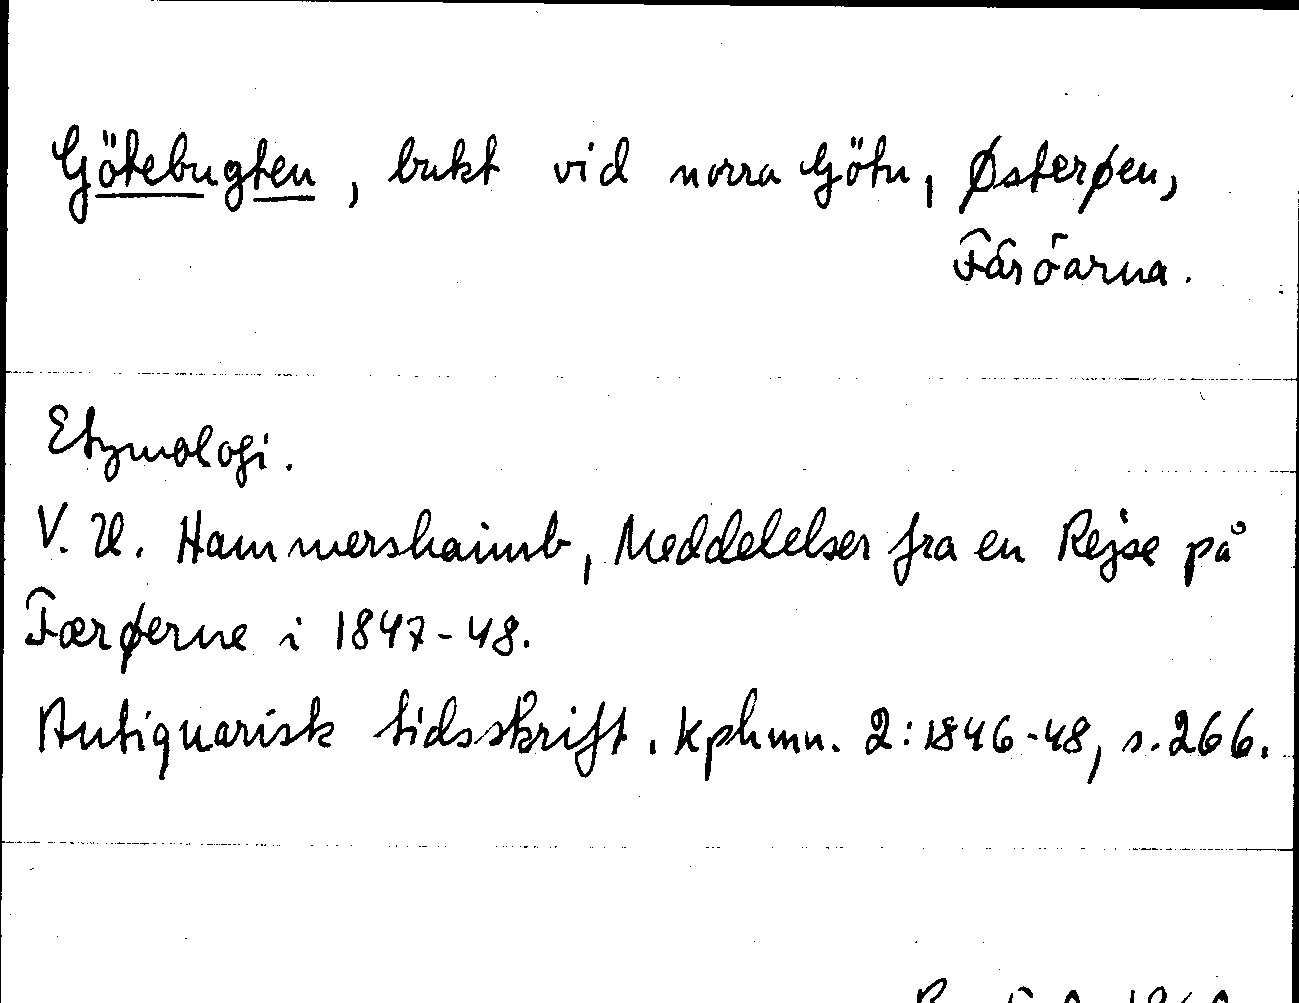 Götebugten, bukt vid norra Götu, Østerøen,
Färöarna.
Etymologi.
V. U. Hammershaimb, Meddelelser fra en Rejse på
Færøerne i 1847-48.
Antiquarisk tidsskrift. Kphmn. 2:1846-48, s.266.